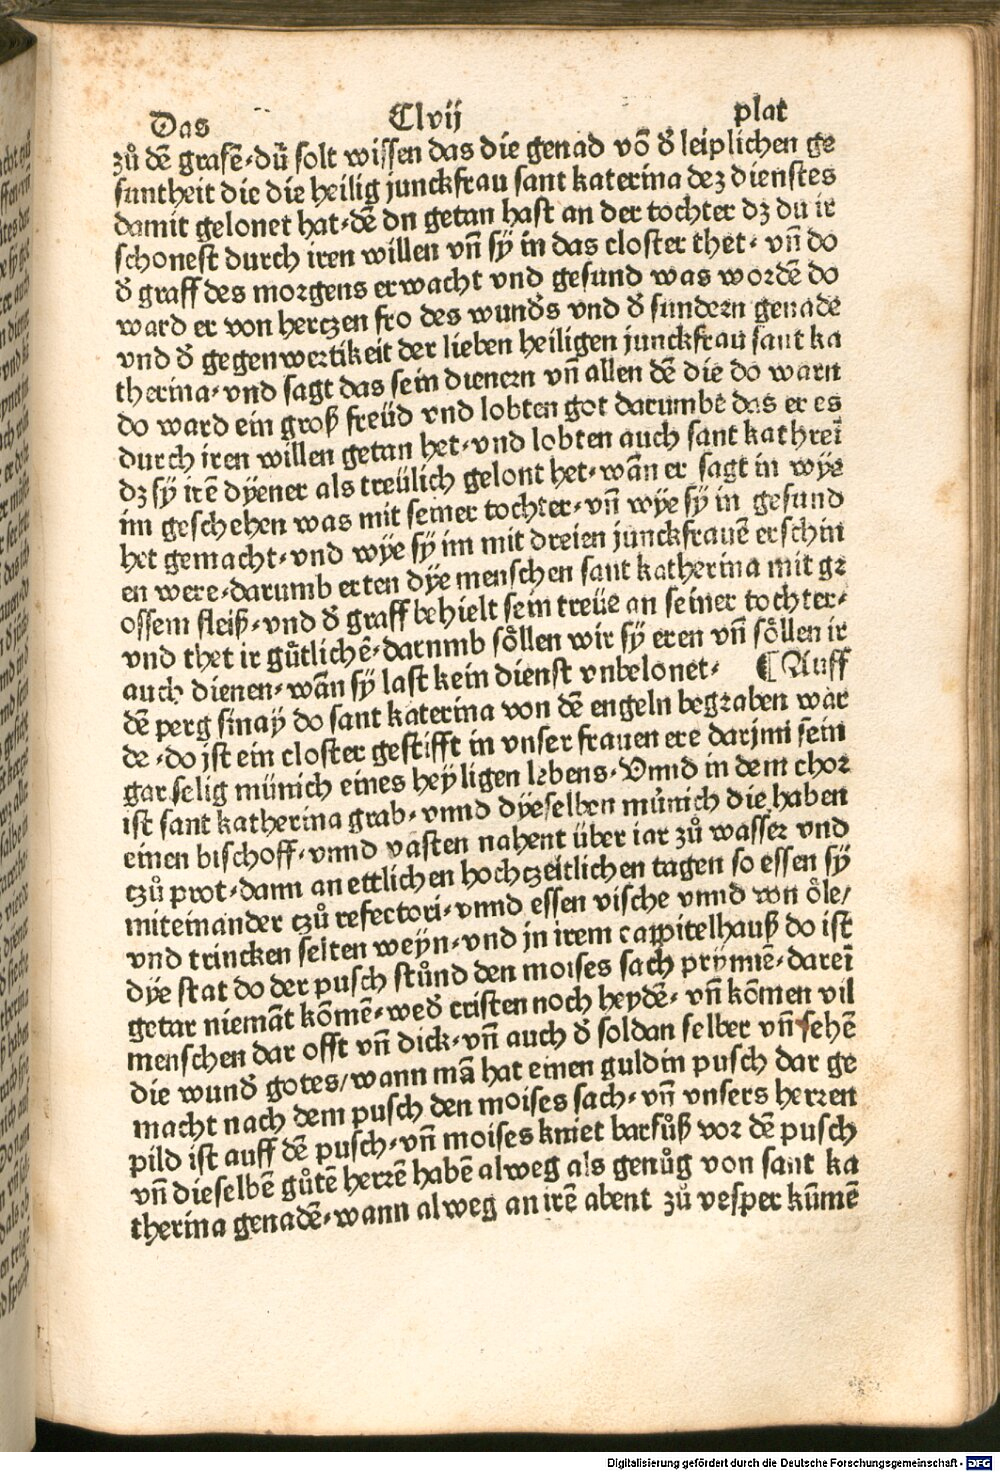 Das Clvij plat
zů dē grafē·dū solt wissen das die genad vō đ leiplichen ge
suntheit die die heilig junckfrau sant katerina dez dienstes
damit gelonet hat·dē dn getan hast an der tochter dz du ir
schonest durch iren willen vñ sÿ in das closter thet· vñ do
đ graff des morgens erwacht vnd gesund was wordē do
ward er von hertzen fro des wundđs vnd đ sundern genade
vnd đ gegenwertikeit der lieben heiligen junckfrau sant ka
therina·vnd sagt das sein dienern vñ allen dē die do warn
do ward ein groß freüd vnd lobten got darumbe das er es
durch iren willen getan het·vnd lobten auch sant kathreī
dz sÿ irē dyener als treülich gelont het·wān er sagt in wÿe
im geschehen was mit seiner tochter·vñ wÿe sÿ in gesund
het gemacht·vnd wÿe sÿ im mit dreien junckfrauē erschin
en were·darumb erten dÿe menschen sant katherina mit gr
ossem fleiß·vnd đ graff behielt sein treüe an seiner tochter·
vnd thet ir gůtlichē·darumb söllen wir sÿ eren vñ söllen ir
auch dienen·wān sÿ last kein dienst vnbelonet· ¶ Auff
dē perg sinaÿ do sant katerina von dē engeln begraben war
de·do jst ein closter gestifft in vnser frauen ere darjnn sein
gar selig münich eines heÿligen lebens·Vnnd in dem chor
ist sant katherina grab·vnnd dÿeselben münich die haben
einen bischoff·vnnd vasten nahent über iar zů wasser vnd
czů prot·dann an ettlichen hochczeitlichen tagen so essen sÿ
miteinander czů refectori·vnnd essen vische vnnd von öle/
vnd trincken selten weÿn·vnd jn irem cappitelhauß do ist
dÿe stat do der pusch stůnd den moises sach prÿnnē·dareī
getar niemāt kōmē·weđ cristen noch heydē· vñ kōmen vil
menschen dar offt vñ dick·vñ auch đ soldan selber vñ sehē
die wunđ gotes/wann mā hat einen guldin pusch dar ge
macht nach dem pusch den moises sach·vñ vnsers herren
pild ist auff dē pusch·vñ moises kniet barfůß vor dē pusch
vñ dieselbē gůtē herrē habē alweg als genůg von sant ka
therina genadē·wann alweg an irē abent zů vesper kūmē
Digitalisierung gefördert durch die Deutsche Forschungsgemeinschaft - DFG